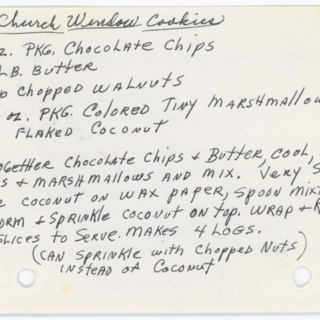 Church Window Cookies
oz. PKG. Chocolate Chips
LB. Butter
Chopped Walnuts
oz. PKG. Colored Tiny Marshmallow
Flaked Coconut
ogether Chocolate Chips & Butter, Cool,
s & Marshmallows and mix. Very S
e coconut on wax paper, spoon mixt
orm & Sprinkle coconut on top. Wrap & R
slices to Serve. Makes 4 Logs.
(Can sprinkle with Chopped Nuts)
instead of Coconut